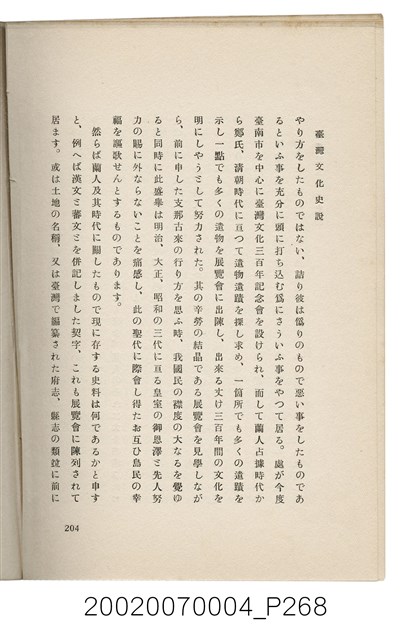 臺灣文化史說
やり方をしたものではない、詰り彼は僞りのもので惡い事をしたものであ
るといふ事を充分に頭に打ち込む爲にさういふ事をやつて居る。處が今度
臺南市を中心に臺灣文化三百年記念會を設けられ、而して蘭人占據時代か
ら鄭氏、淸朝時代に亘つて遺物遺蹟を探し求め、一箇所でも多くの遺蹟を
示し一點でも多くの遺物を展覽會に出陳し、出來る丈け三百年間の文化を
明にしやうとして努力された。其の辛勞の結晶である展覽會を見學しなが
ら、前に申した支那古來の行り方を思ふ時、我國民の襟度の大なるを覺ゆ
ると同時に此盛擧は明治、大正、昭和の三代に亘る皇室の御恩澤と先人努
力の賜に外ならないことを痛感し、此の聖代に際會し得たお互ひ島民の幸
福を謳歌せんとするものであります。
然らば蘭人及其時代に關したもので現に存する史料は何であるかと申す
と、例へば漢文と蕃文とを併記しました契字、これも展覽會に陳列されて
居ます。或は土地の名稱、又は臺灣で編纂された府志、縣志の類竝に前に
204
20020070004_P268